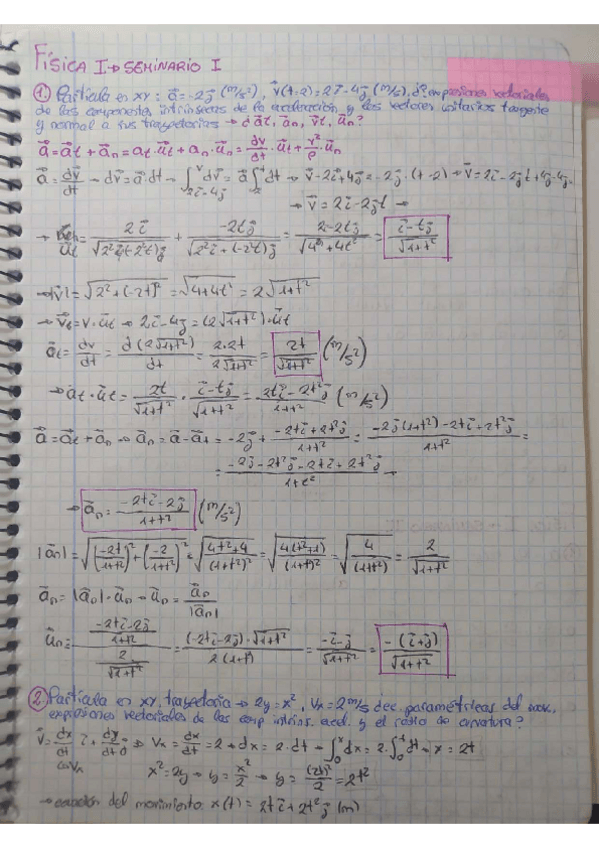 FÍSICA I → SEMINARIO I
1. Partícula en XY: a⃗ = -2j⃗ (m/s²), v⃗(t=2) = 2i⃗ - 4j⃗ (m/s), ¿expresiones vectoriales
de las componentes intrínsecas de la aceleración y los vectores unitarios tangente
y normal a sus trayectorias → ¿a⃗t, a⃗n, v⃗t, u⃗n?
a⃗ = a⃗t + a⃗n = at·u⃗t + an·u⃗n = dv/dt·u⃗t + v²/ρ·u⃗n
a⃗ = dv⃗/dt → dv⃗ = a⃗·dt → ∫ dv⃗ = a⃗ ∫ dt → v⃗ - 2i⃗ + 4j⃗ = -2j⃗·(t-2) → v⃗ = 2i⃗ - 2j⃗t + 4j⃗ - 4j⃗
→ v⃗ = 2i⃗ - 2j⃗t →
u⃗t = 2i⃗ / + -2tj⃗ / = 2i⃗ - 2tj⃗ / √(4 + 4t²) = i⃗ - tj⃗ / √(1+t²)
→ |v⃗| = √(2² + (-2t)²) = √(4+4t²) = 2√(1+t²)
→ v⃗t = v·u⃗t → 2i⃗ - 4j⃗ = (2√(1+t²))·u⃗t
a⃗t = dv/dt = d(2√(1+t²))/dt = 2·2t / 2√(1+t²) = 2t / √(1+t²) (m/s²)
→ at·u⃗t = 2t/√(1+t²) · i⃗ - tj⃗ / √(1+t²) = 2ti⃗ - 2t²j⃗ / 1+t² (m/s²)
a⃗ = a⃗t + a⃗n → a⃗n = a⃗ - a⃗t = -2j⃗ + -2ti⃗ + 2t²j⃗ / 1+t² = -2j⃗(1+t²) - 2ti⃗ + 2t²j⃗ / 1+t² =
= -2j⃗ - 2t²j⃗ - 2ti⃗ + 2t²j⃗ / 1+t² →
→ a⃗n = -2ti⃗ - 2j⃗ / 1+t² (m/s²)
|a⃗n| = √((-2t/1+t²)² + (-2/1+t²)²) = √(4t²+4 / (1+t²)²) = √(4(t²+1) / (1+t²)²) = √(4 / (1+t²)) = 2 / √(1+t²)
a⃗n = |a⃗n|·u⃗n → u⃗n = a⃗n / |a⃗n|
u⃗n = (-2ti⃗ - 2j⃗ / 1+t²) / (2 / √(1+t²)) = (-2ti⃗ - 2j⃗)·√(1+t²) / 2(1+t²) = -i⃗ - j⃗ / √(1+t²) = -(i⃗ + j⃗) / √(1+t²)
2. Partícula en XY, trayectoria → 2y = x², Vx = 2 m/s ¿ec. paramétricas del mov.,
expresiones vectoriales de las comp intríns. acel. y el radio de curvatura?
v⃗ = dx/dt i⃗ + dy/dt j⃗ → Vx = dx/dt = 2 → dx = 2·dt → ∫₀ˣ dx = 2·∫₀ᵗ dt → x = 2t
x² = 2y → y = x²/2 → y = (2t)²/2 = 2t²
→ ecuación del movimiento: x(t) = 2ti⃗ + 2t²j⃗ (m)